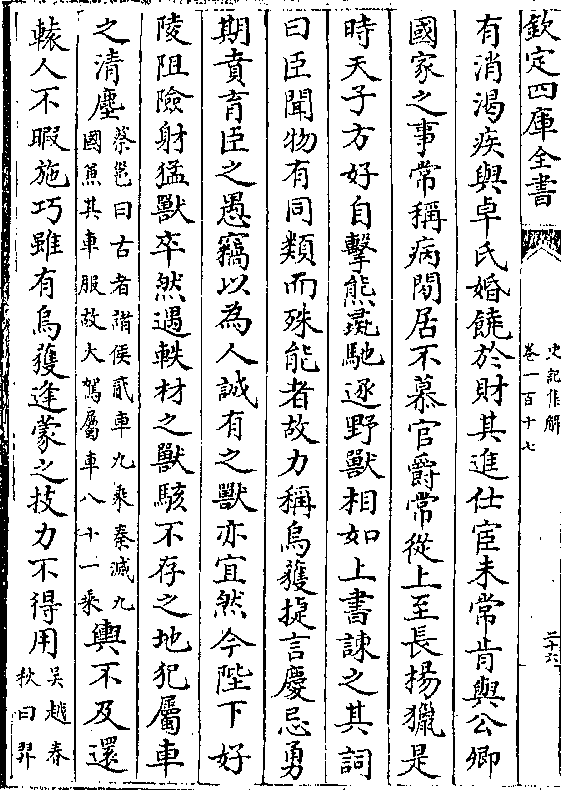 欽定四庫全書
史記集解
卷一百十七
二十六
有消渴疾與卓氏婚饒於財其進仕宦未常肯與公卿
國家之事常稱病閒居不慕官爵常從上至長揚獵是
時天子方好自擊熊彘馳逐野獸相如上書諫之其詞
曰臣聞物有同類而殊能者故力稱烏獲捷言慶忌勇
期賁育臣之愚竊以為人誠有之獸亦宜然今陛下好
陵阻險射猛獸卒然遇軼材之獸駭不存之地犯屬車
之清塵蔡邕曰古者諸侯貳車九乘秦滅九國兼其車服故大駕屬車八十一乘輿不及還
轅人不暇施巧雖有烏獲逢蒙之技力不得用吳越春秋曰羿